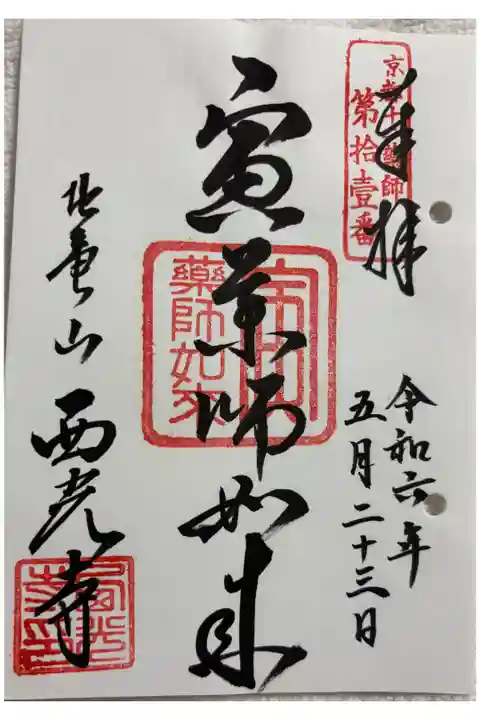 京都十二藥師
第拾壹番
奉拝
令和六年
五月二十三日
寅薬師如来
寅
藥師如來
北亀山
西光寺